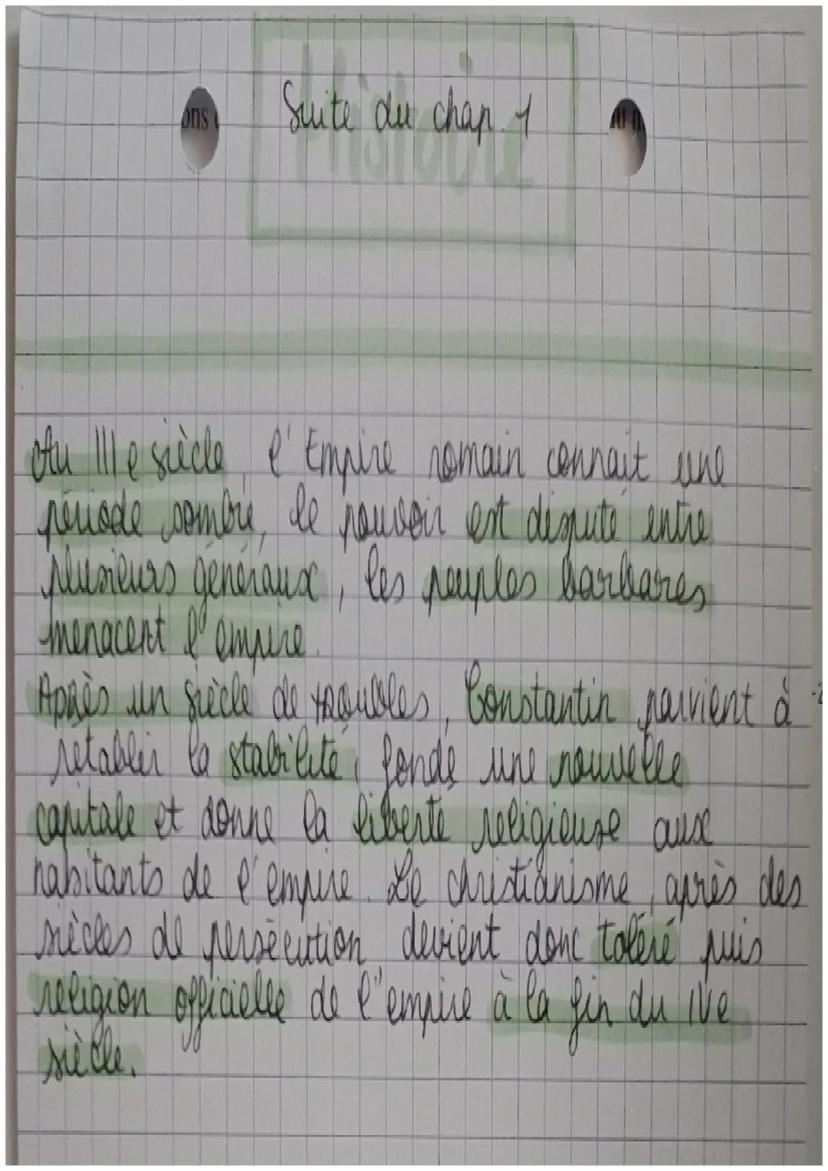 Histoire
Suite du chap. 1
ons
Au IIIe siècle, l'Empire romain connait une
période sombre, le pouvoir est disputé entre
plusieurs généraux, les peuples barbares
menacent l'empire.
Après un siècle de troubles, Constantin parvient à
rétablir la stabilité, fonde une nouvelle
capitale et donne la liberté religieuse aux
habitants de l'empire. Le christianisme, après des
siècles de persécution devient donc toléré puis
religion officielle de l'empire à la fin du IVe
siècle.